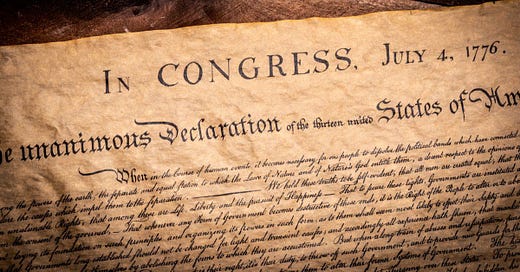 IN CONGRESS, JULY 4, 1776.
he unanimous Declaration of the thirteen united States of Am
When in the course of human events, it becomes necessary for one people to dissolve the political bands which have connected
ng the powers of the earth, the separate and equal station to which the Laws of Nature and of Nature's God entitle them, a decent respect to the opinions of
the causes which impel them to the separation. We hold these truths to be self-evident, that all men are created equal, that
Rights, that among these are Life, Liberty and the pursuit of Happiness. That to secure these rights, Governments are instituted
the consent of the governed, That whenever any Form of Government becomes destructive of these ends, it is the Right of the People to alter or to
laying its foundation on such principles and organizing its powers in such form, as to them shall seem most likely to effect their Safety and
long established should not be changed for light and transient causes; and accordingly all experience hath shewn, that
by abolishing the forms to which they are accustomed. But when a long train of abuses and usurpations,
it is their right, it is their duty, to throw off such Government, and to provide new Guards
alter their former Systems of Government.